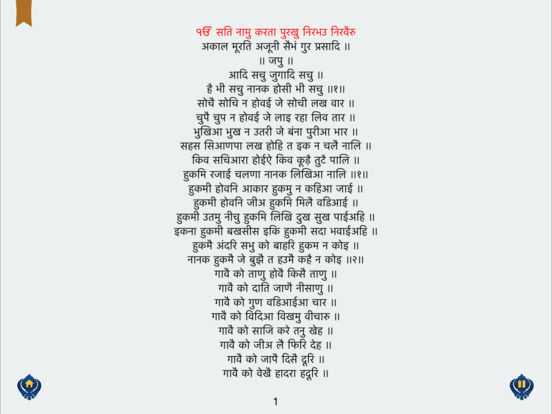 ੴ सति नामु करता पुरखु निरभउ निरवैरु
अकाल मूरति अजूनी सैभं गुर प्रसादि ॥
॥ जपु ॥
आदि सचु जुगादि सचु ॥
है भी सचु नानक होसी भी सचु ॥१॥
सोचै सोचि न होवई जे सोची लख वार ॥
चुपै चुप न होवई जे लाइ रहा लिव तार ॥
भुखिआ भुख न उतरी जे बंना पुरीआ भार ॥
सहस सिआणपा लख होहि त इक न चलै नालि ॥
किव सचिआरा होईऐ किव कूड़ै तुटै पालि ॥
हुकमि रजाई चलणा नानक लिखिआ नालि ॥१॥
हुकमी होवनि आकार हुकमु न कहिआ जाई ॥
हुकमी होवनि जीअ हुकमि मिलै वडिआई ॥
हुकमी उतमु नीचु हुकमि लिखि दुख सुख पाईअहि ॥
इकना हुकमी बखसीस इकि हुकमी सदा भवाईअहि ॥
हुकमै अंदरि सभु को बाहरि हुकम न कोइ ॥
नानक हुकमै जे बुझै त हउमै कहै न कोइ ॥२॥
गावै को ताणु होवै किसै ताणु ॥
गावै को दाति जाणै नीसाणु ॥
गावै को गुण वडिआईआ चार ॥
गावै को विदिआ विखमु वीचारु ॥
गावै को साजि करे तनु खेह ॥
गावै को जीअ लै फिरि देह ॥
गावै को जापै दिसै दूरि ॥
गावै को वेखै हादरा हदूरि ॥
1